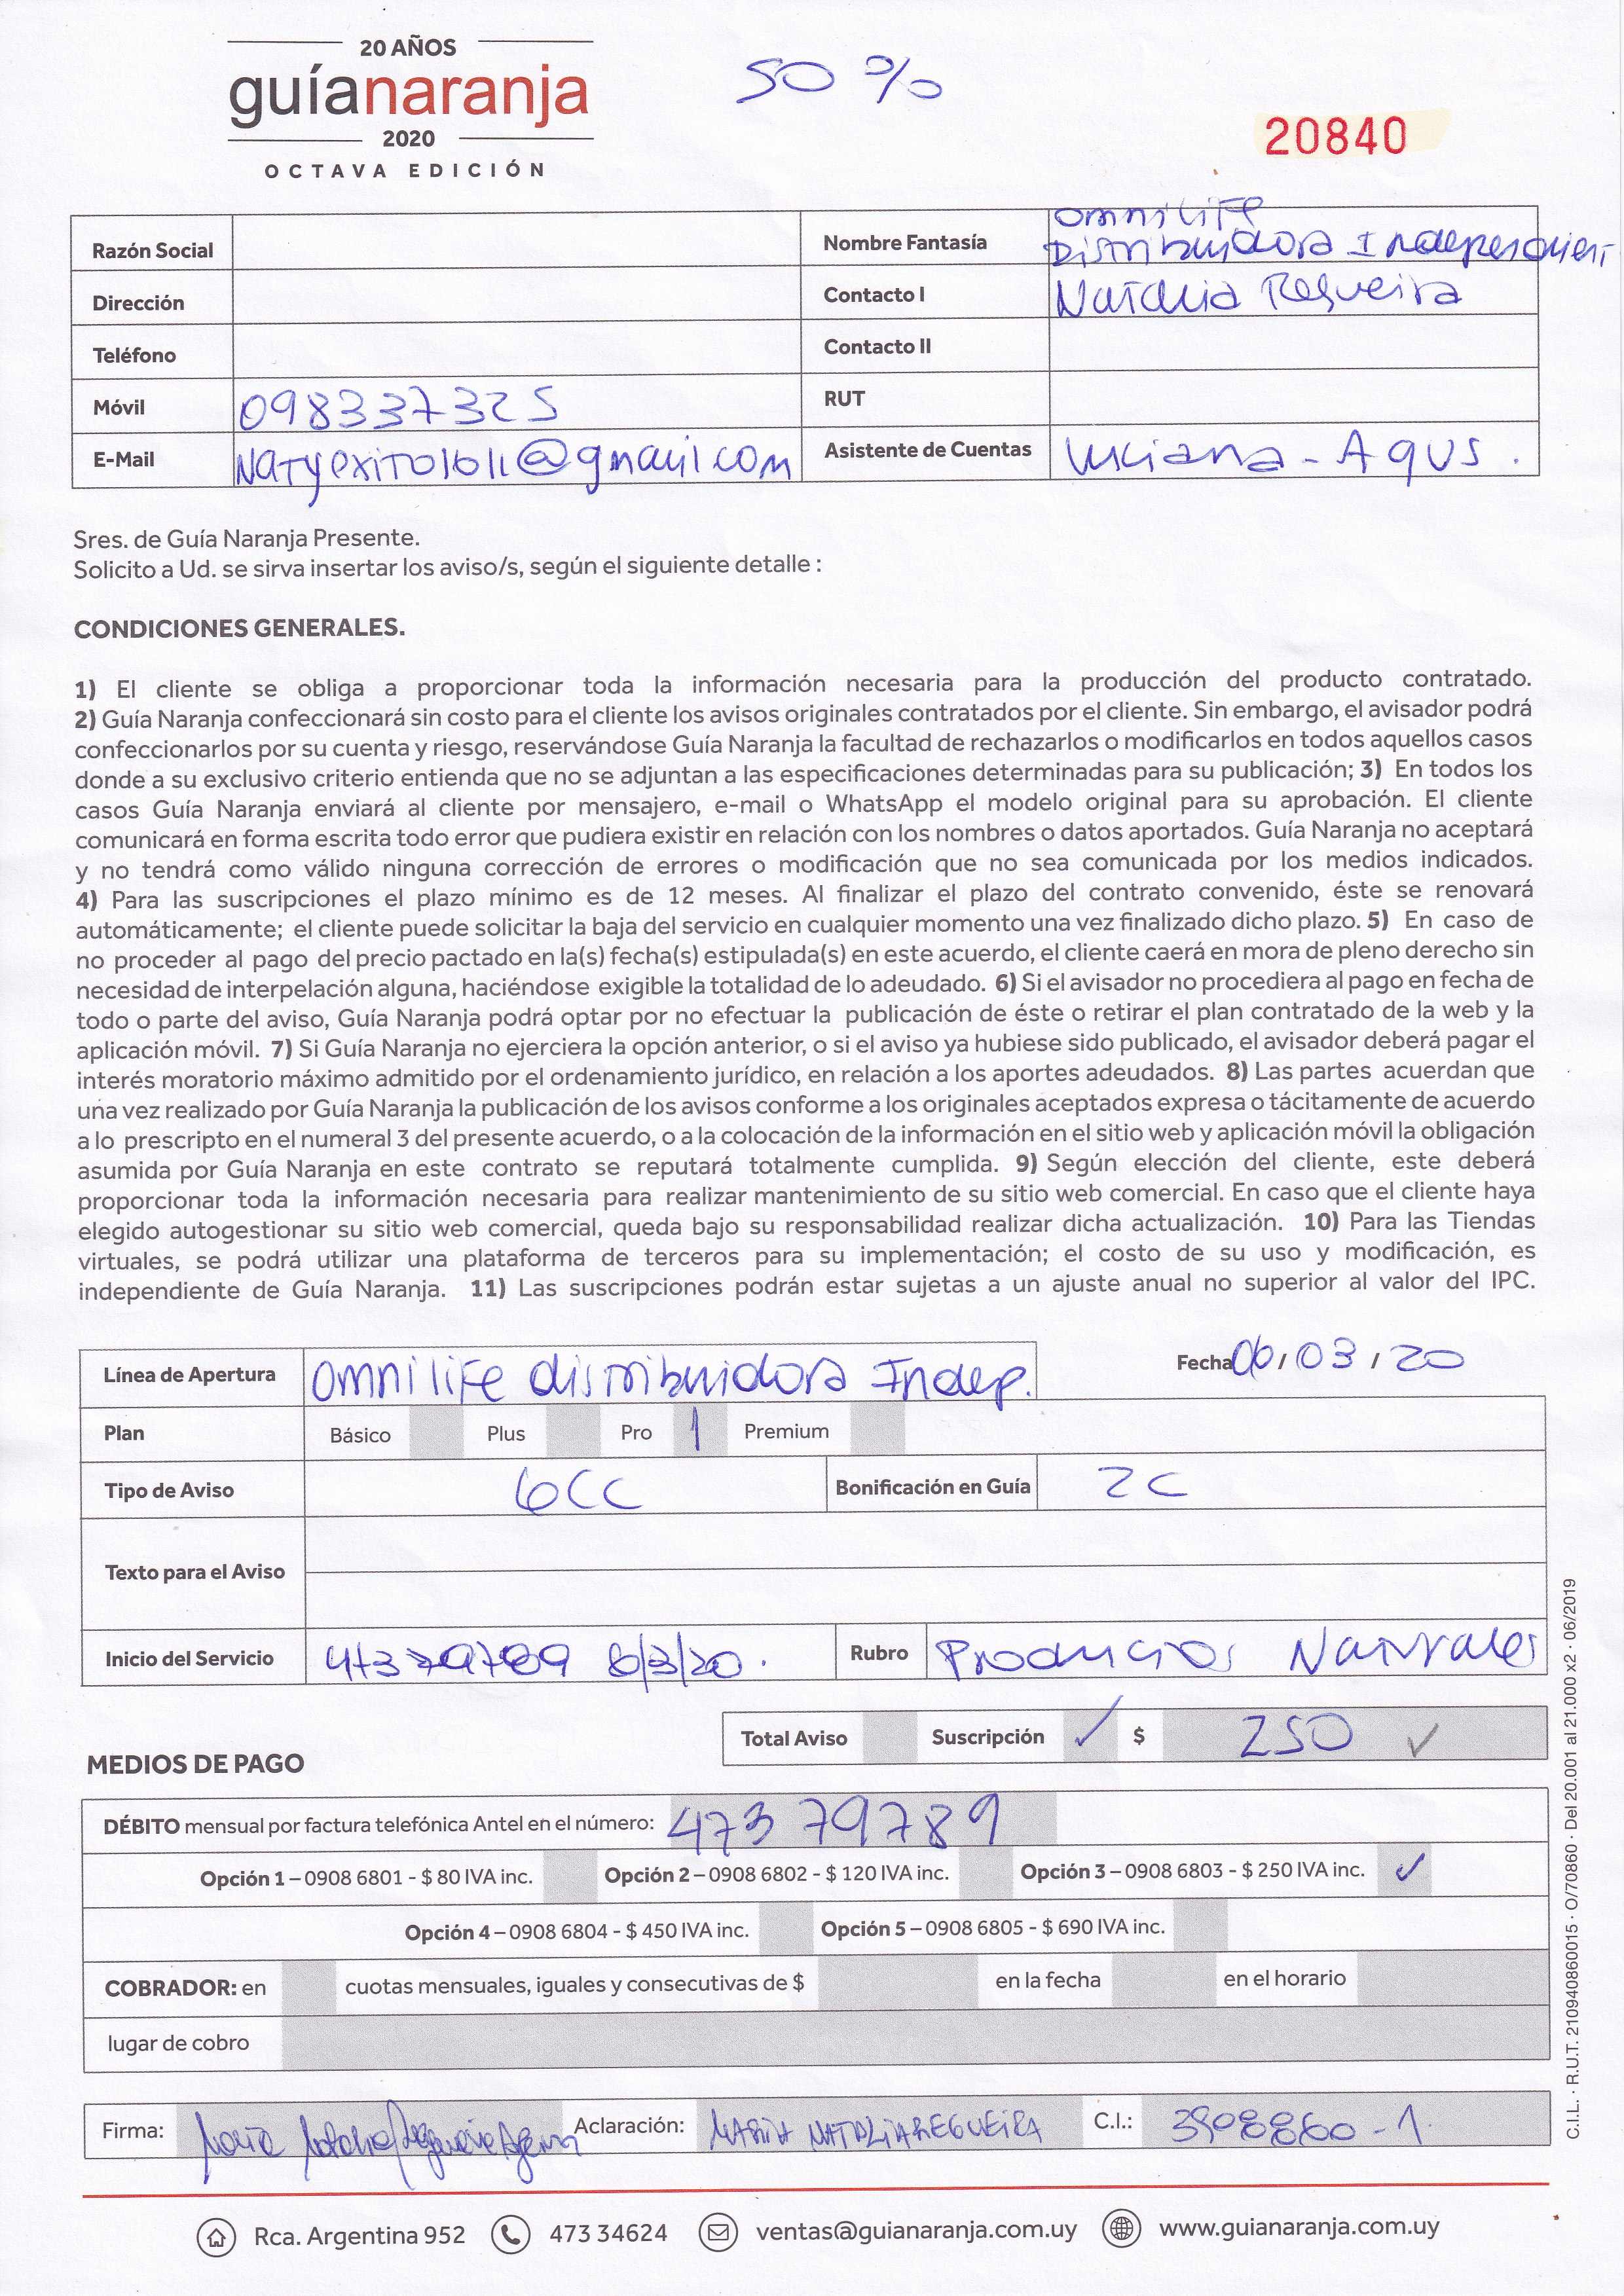 20 AÑOS
guíanaranja
2020
OCTAVA EDICIÓN
50 %
20840
Razón Social
Nombre Fantasía Omnilife
Distribuidora Independient
Dirección
Contacto I Natalia Regueira
Teléfono
Contacto II
Móvil 098337325
RUT
E-Mail Natyexito1611@gmail.com
Asistente de Cuentas Luciana - Agus.
Sres. de Guía Naranja Presente.
Solicito a Ud. se sirva insertar los aviso/s, según el siguiente detalle :
CONDICIONES GENERALES.
1) El cliente se obliga a proporcionar toda la información necesaria para la producción del producto contratado.
2) Guía Naranja confeccionará sin costo para el cliente los avisos originales contratados por el cliente. Sin embargo, el avisador podrá
confeccionarlos por su cuenta y riesgo, reservándose Guía Naranja la facultad de rechazarlos o modificarlos en todos aquellos casos
donde a su exclusivo criterio entienda que no se adjuntan a las especificaciones determinadas para su publicación; 3) En todos los
casos Guía Naranja enviará al cliente por mensajero, e-mail o WhatsApp el modelo original para su aprobación. El cliente
comunicará en forma escrita todo error que pudiera existir en relación con los nombres o datos aportados. Guía Naranja no aceptará
y no tendrá como válido ninguna corrección de errores o modificación que no sea comunicada por los medios indicados.
4) Para las suscripciones el plazo mínimo es de 12 meses. Al finalizar el plazo del contrato convenido, éste se renovará
automáticamente; el cliente puede solicitar la baja del servicio en cualquier momento una vez finalizado dicho plazo. 5) En caso de
no proceder al pago del precio pactado en la(s) fecha(s) estipulada(s) en este acuerdo, el cliente caerá en mora de pleno derecho sin
necesidad de interpelación alguna, haciéndose exigible la totalidad de lo adeudado. 6) Si el avisador no procediera al pago en fecha de
todo o parte del aviso, Guía Naranja podrá optar por no efectuar la publicación de éste o retirar el plan contratado de la web y la
aplicación móvil. 7) Si Guía Naranja no ejerciera la opción anterior, o si el aviso ya hubiese sido publicado, el avisador deberá pagar el
interés moratorio máximo admitido por el ordenamiento jurídico, en relación a los aportes adeudados. 8) Las partes acuerdan que
una vez realizado por Guía Naranja la publicación de los avisos conforme a los originales aceptados expresa o tácitamente de acuerdo
a lo prescripto en el numeral 3 del presente acuerdo, o a la colocación de la información en el sitio web y aplicación móvil la obligación
asumida por Guía Naranja en este contrato se reputará totalmente cumplida. 9) Según elección del cliente, este deberá
proporcionar toda la información necesaria para realizar mantenimiento de su sitio web comercial. En caso que el cliente haya
elegido autogestionar su sitio web comercial, queda bajo su responsabilidad realizar dicha actualización. 10) Para las Tiendas
virtuales, se podrá utilizar una plataforma de terceros para su implementación; el costo de su uso y modificación, es
independiente de Guía Naranja. 11) Las suscripciones podrán estar sujetas a un ajuste anual no superior al valor del IPC.
Línea de Apertura Omnilife distribuidora Indep.
Fecha / 03 / 20
Plan Básico Plus Pro 1 Premium
Tipo de Aviso 6CC Bonificación en Guía 2C
Texto para el Aviso
Inicio del Servicio /3/20. Rubro Productos Naturales
Total Aviso Suscripción ✓ $ 250 ✓
MEDIOS DE PAGO
DÉBITO mensual por factura telefónica Antel en el número: 473 79789
Opción 1 – 0908 6801 - $ 80 IVA inc. Opción 2 – 0908 6802 - $ 120 IVA inc. Opción 3 – 0908 6803 - $ 250 IVA inc. ✓
Opción 4 – 0908 6804 - $ 450 IVA inc. Opción 5 – 0908 6805 - $ 690 IVA inc.
COBRADOR: en cuotas mensuales, iguales y consecutivas de $ en la fecha en el horario
lugar de cobro
Firma: María Natalia Regueira Aclaración: MARIA NATALIA REGUEIRA C.I.: 3908860-1
Rca. Argentina 952 473 34624 ventas@guianaranja.com.uy www.guianaranja.com.uy
C.I.L. · R.U.T. 210940860015 · O/70860 · Del 20.001 al 21.000 x2 · 06/2019